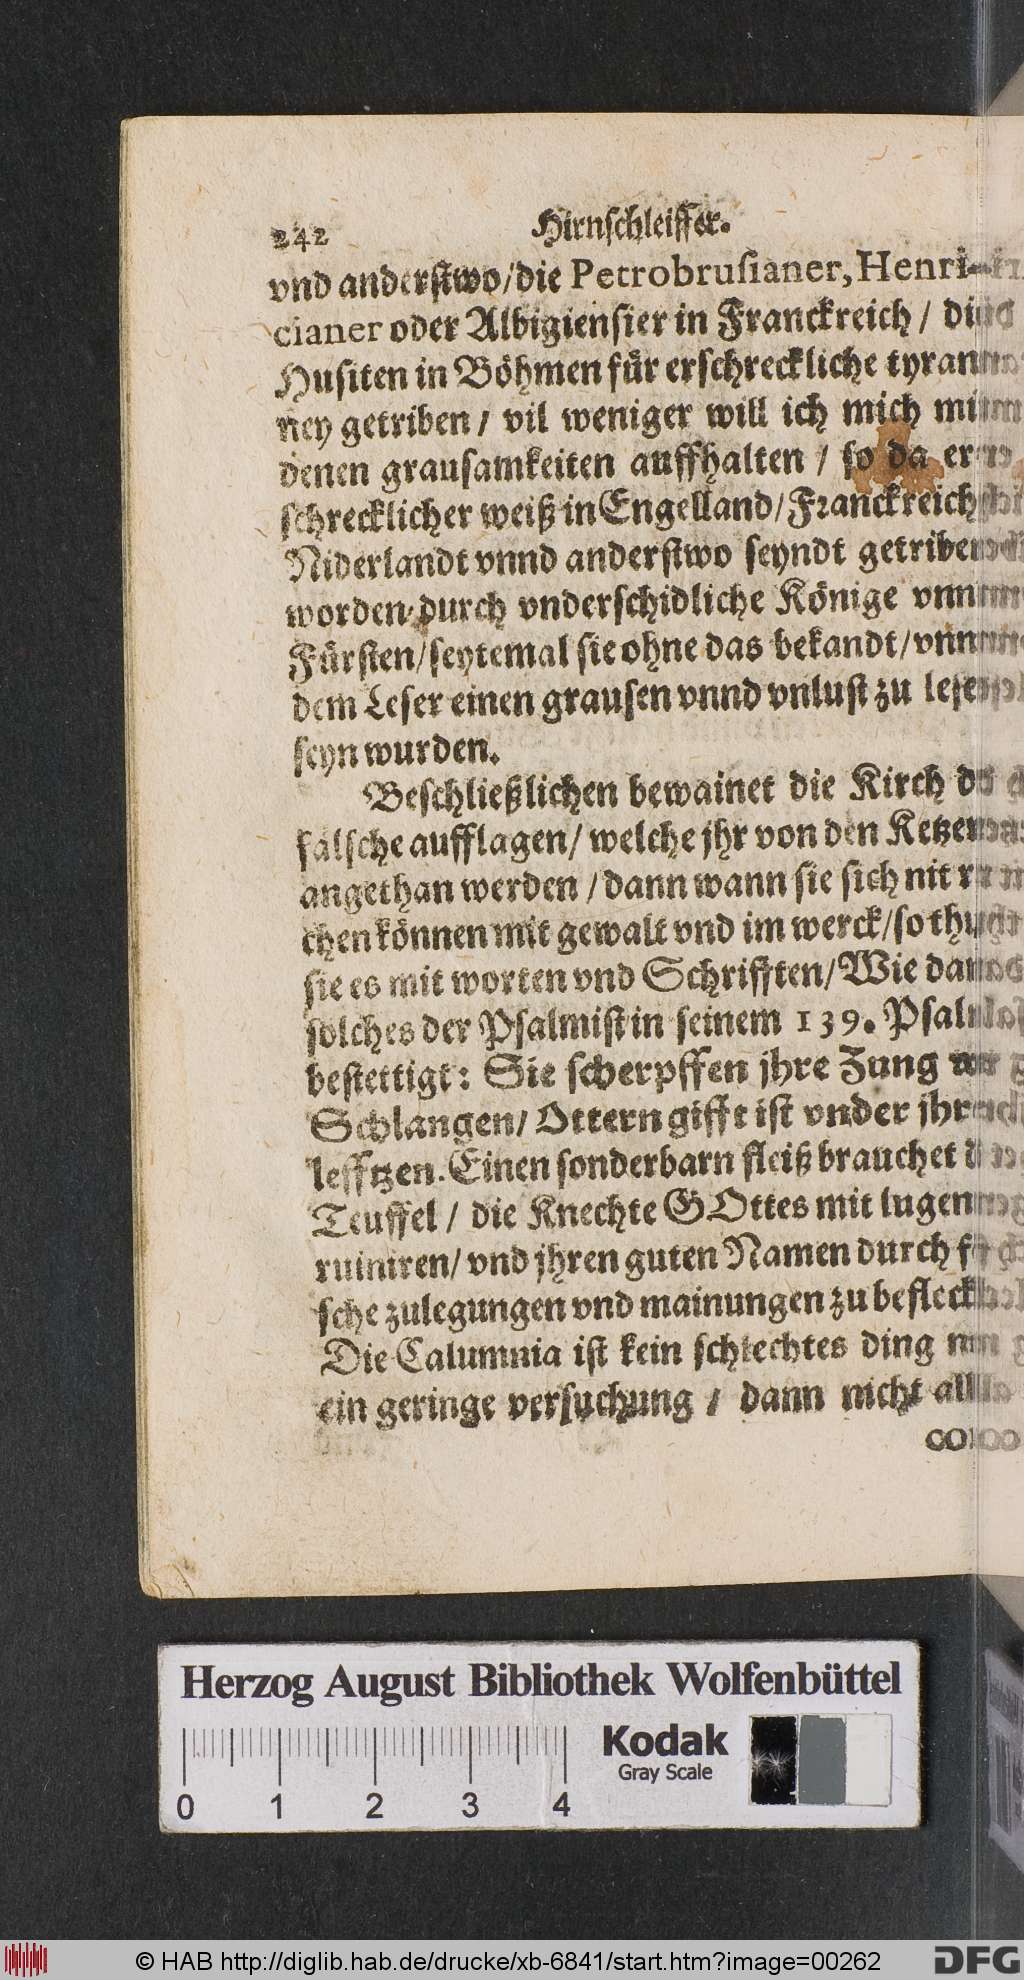 242 Hirnschleiffer.
vnd anderstwo/die Petrobrusianer, Henri-
cianer oder Albigiensier in Franckreich / die
Husiten in Böhmen für erschreckliche tyran-
ney getriben / vil weniger will ich mich mit
denen grausamkeiten auffhalten / so da er-
schrecklicher weiß in Engelland/Franckreich/
Niderlandt vnnd anderstwo seyndt getriben
worden durch vnderschidliche Könige vnnd
Fürsten/seytemal sie ohne das bekandt/vnnd
dem Leser einen grausen vnnd vnlust zu lesen
seyn wurden.
Beschließlichen bewainet die Kirch die
falsche aufflagen/ welche jhr von den Ketzern
angethan werden /dann wann sie sich nit re-
chen können mit gewalt vnd im werck/so thun
sie es mit worten vnd Schrifften/Wie dann
solches der Psalmist in seinem 139. Psalm
bestettigt: Sie scherpffen jhre Zung wie
Schlangen/ Ottern gifft ist vnder jhren
lefftzen. Einen sonderbarn fleiß brauchet der
Teuffel / die Knechte GOttes mit lugen zu
ruiniren/ vnd jhren guten Namen durch fal-
sche zulegungen vnd mainungen zu beflecken
Die Calumnia ist kein schlechtes ding
ein geringe versuchung / dann nicht
Herzog August Bibliothek Wolfenbüttel
Kodak
Gray Scale
0 1 2 3 4
© HAB http://diglib.hab.de/drucke/xb-6841/start.htm?image=00262
DFG